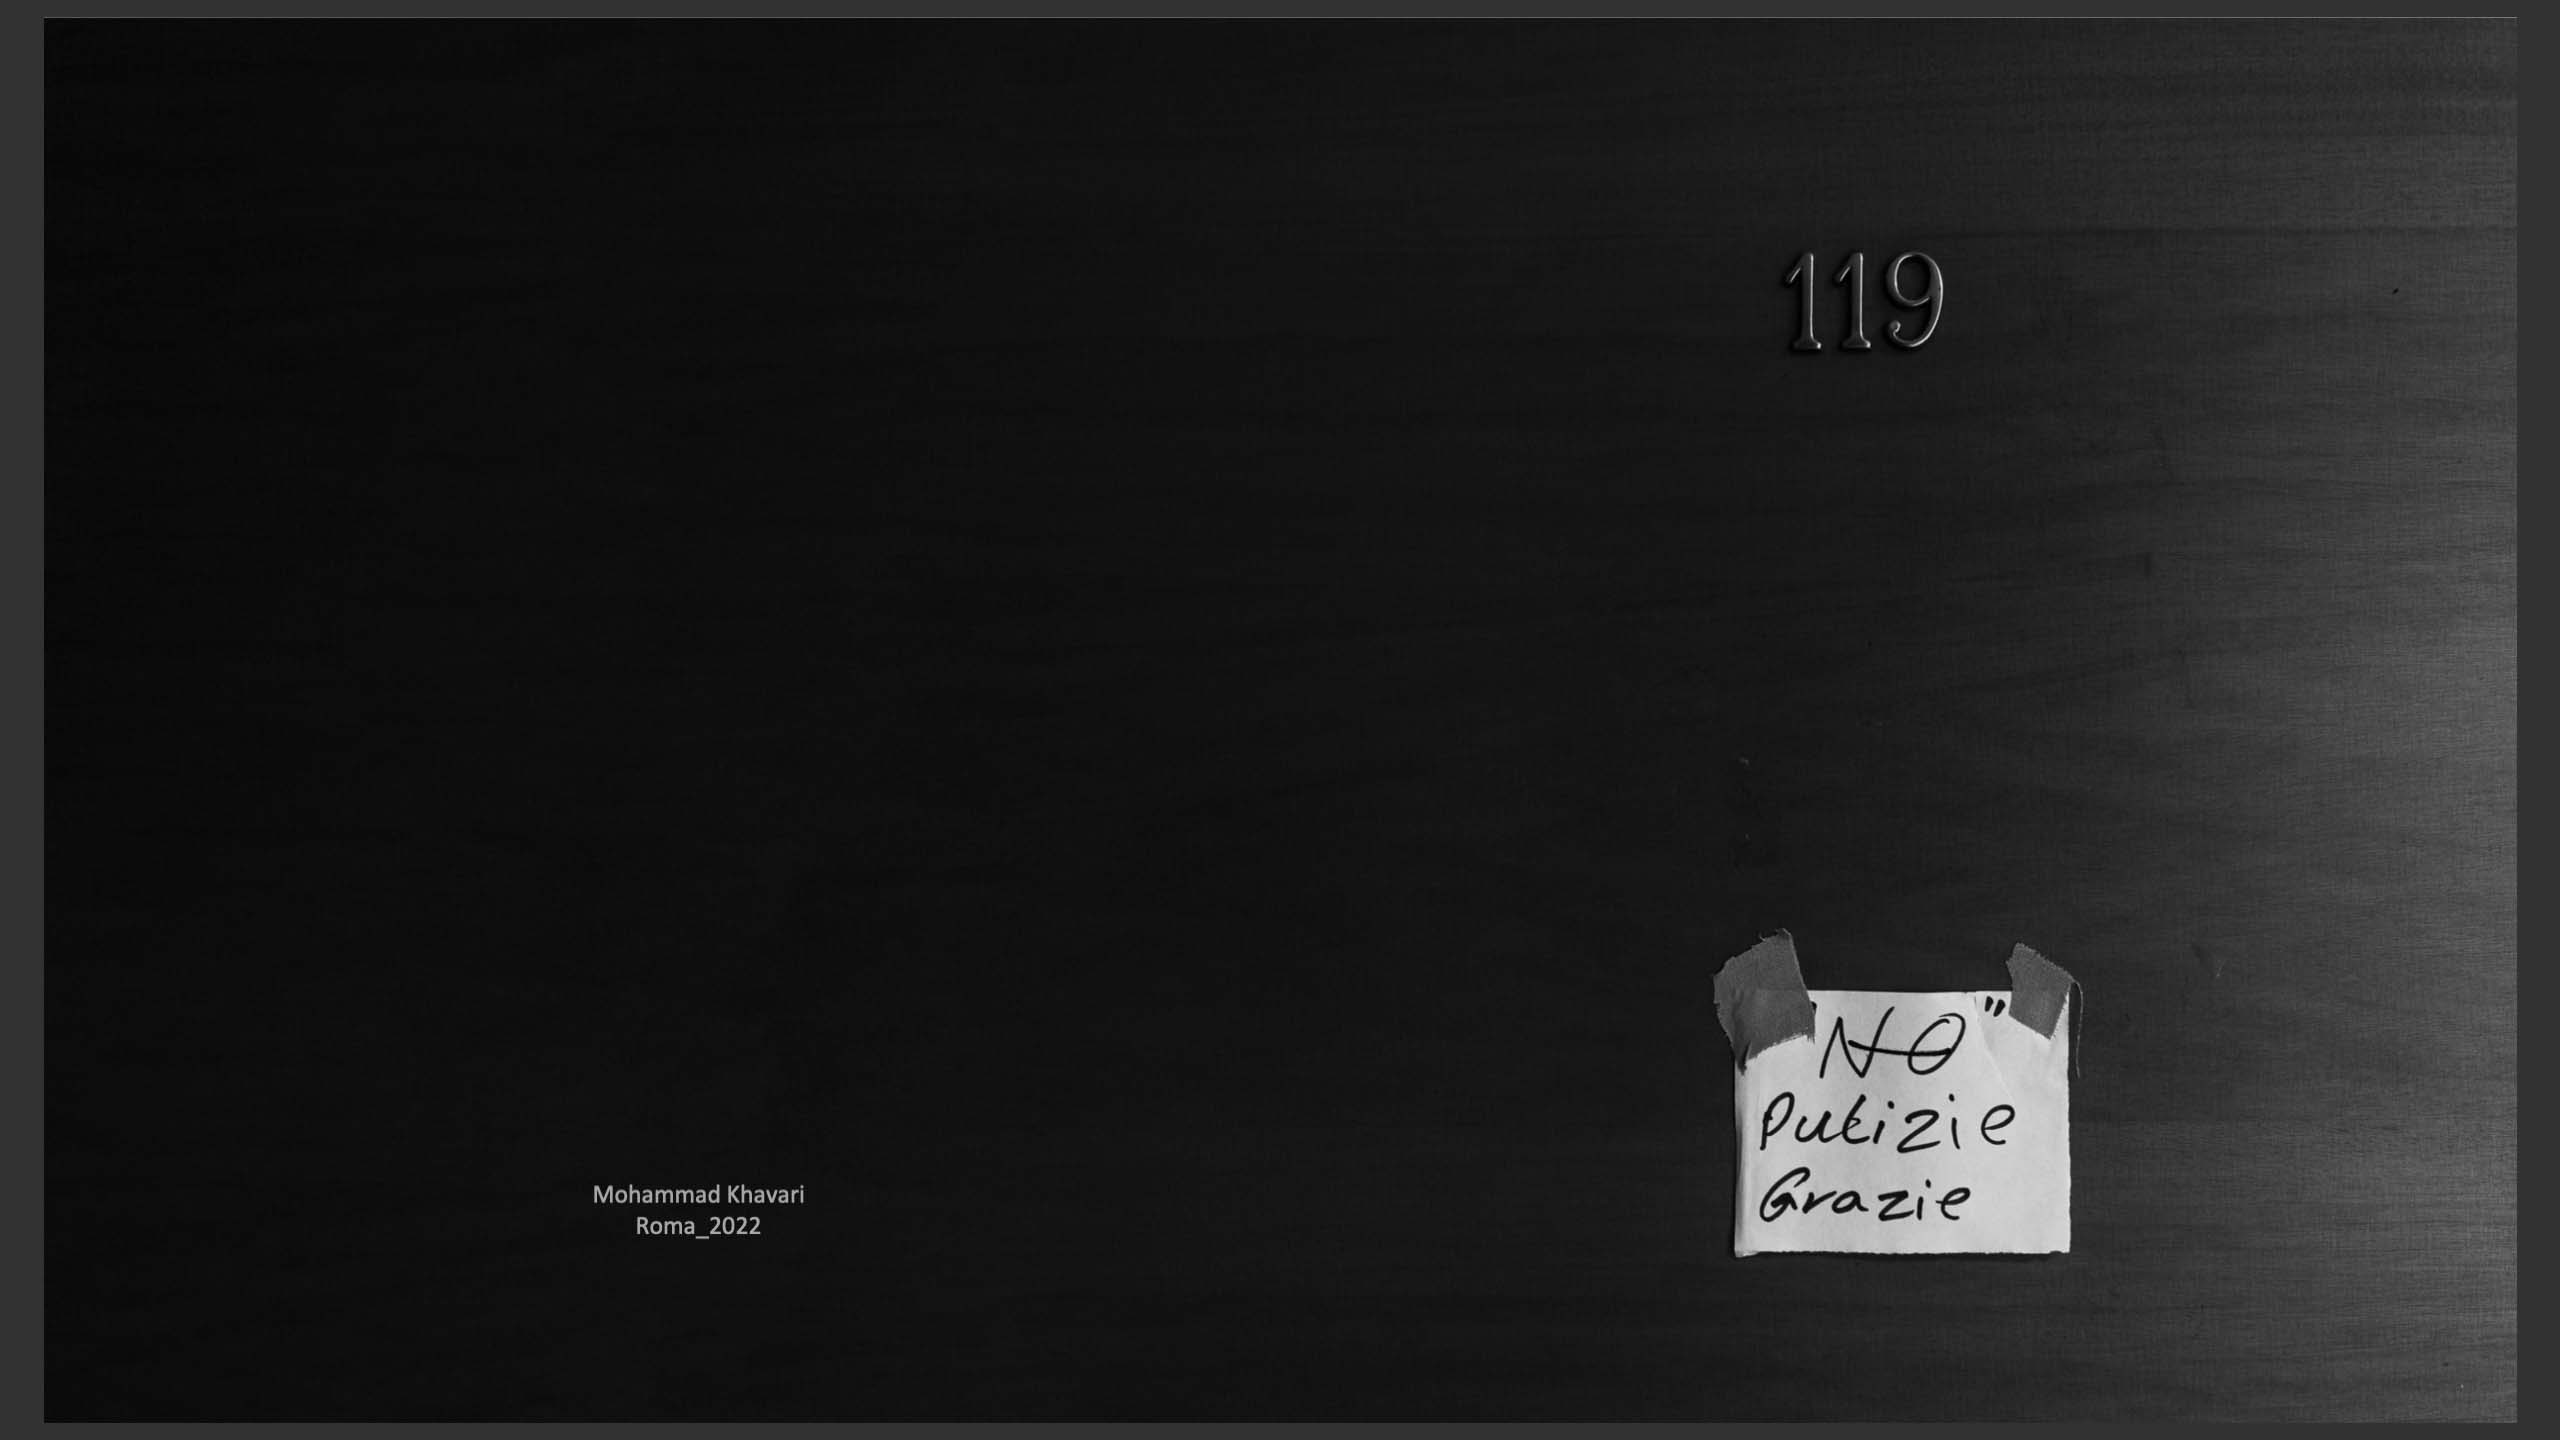 119
"NO"
Pulizie
Grazie
Mohammad Khavari
Roma_2022